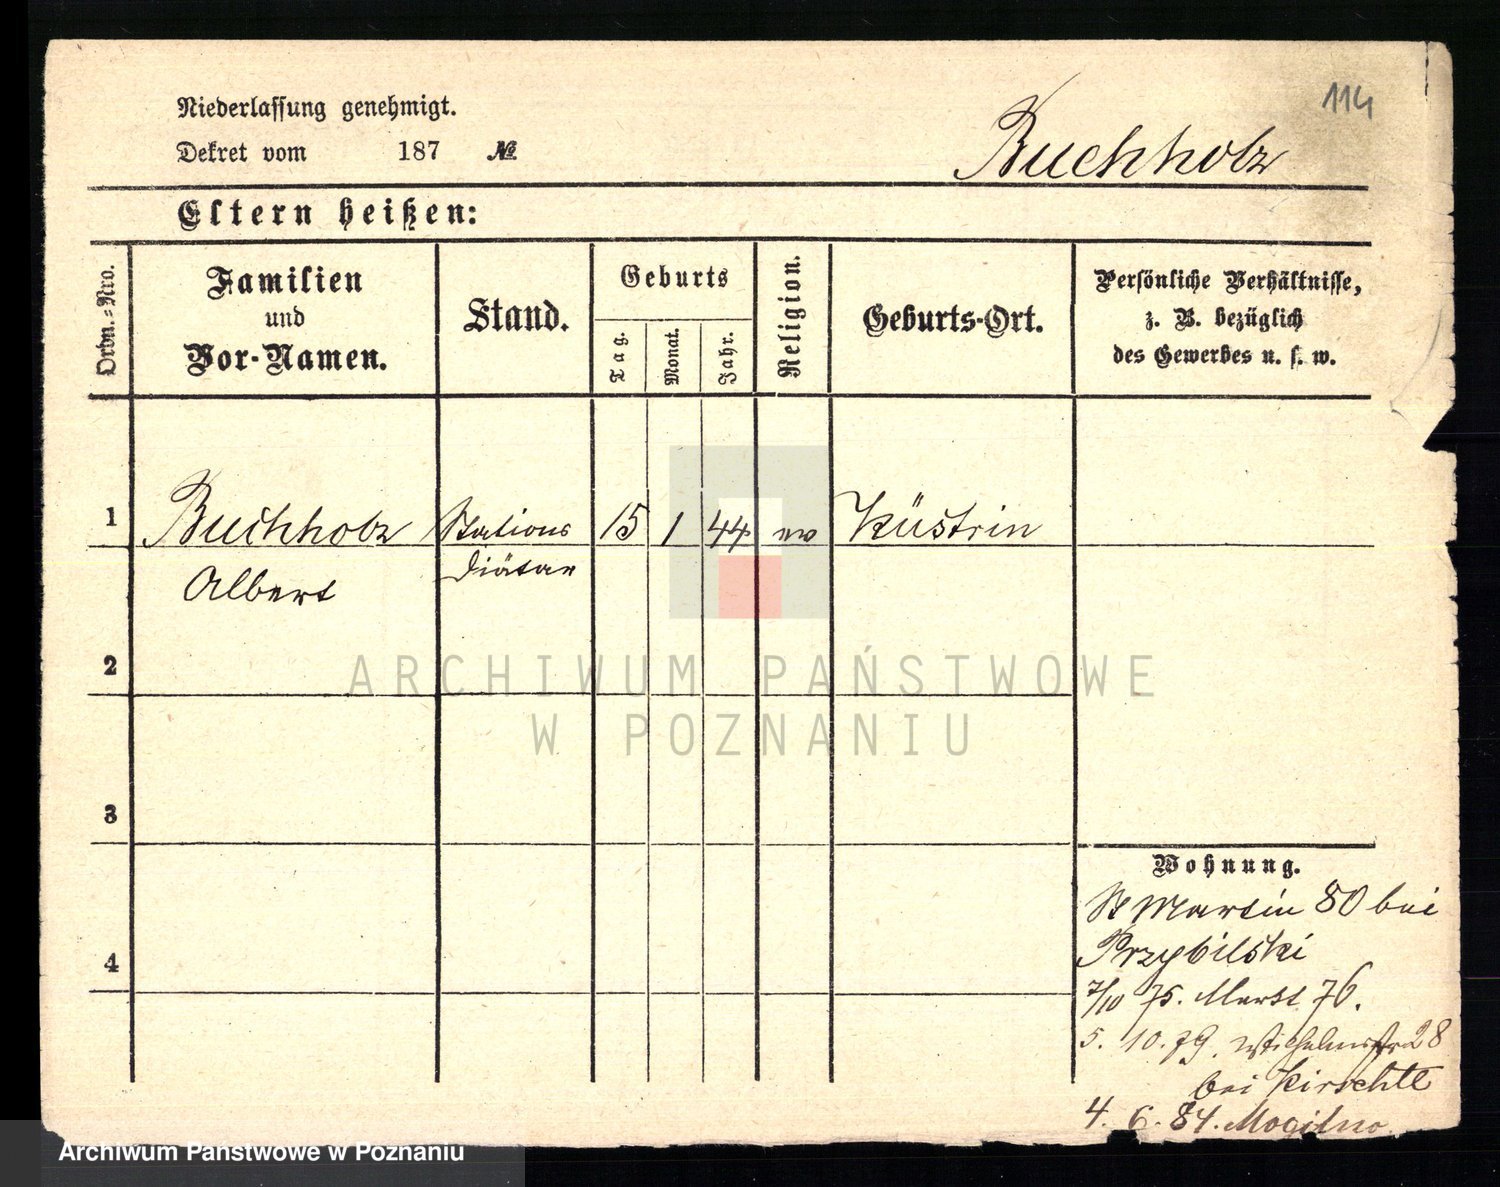 114
Niederlassung genehmigt.
Dekret vom 187 №
Buchholz
Eltern heißen:
Ordn.-Nro.
Familien
und
Vor-Namen.
Stand.
Geburts
Tag.
Monat.
Jahr.
Religion.
Geburts-Ort.
Persönliche Verhältnisse,
z. B. bezüglich
des Gewerbes u. s. w.
1 Buchholz Stations 15 1 44 ev Küstrin
Albert Diätar
2
3
4
Wohnung.
St Martin 80 bei
Przybilski
7/10 75. Markt 76.
5. 10. 79. Wilhelmstr 28
bei Kirschte
4. 6. 84. Mogilno
ARCHIWUM PAŃSTWOWE
W POZNANIU
Archiwum Państwowe w Poznaniu